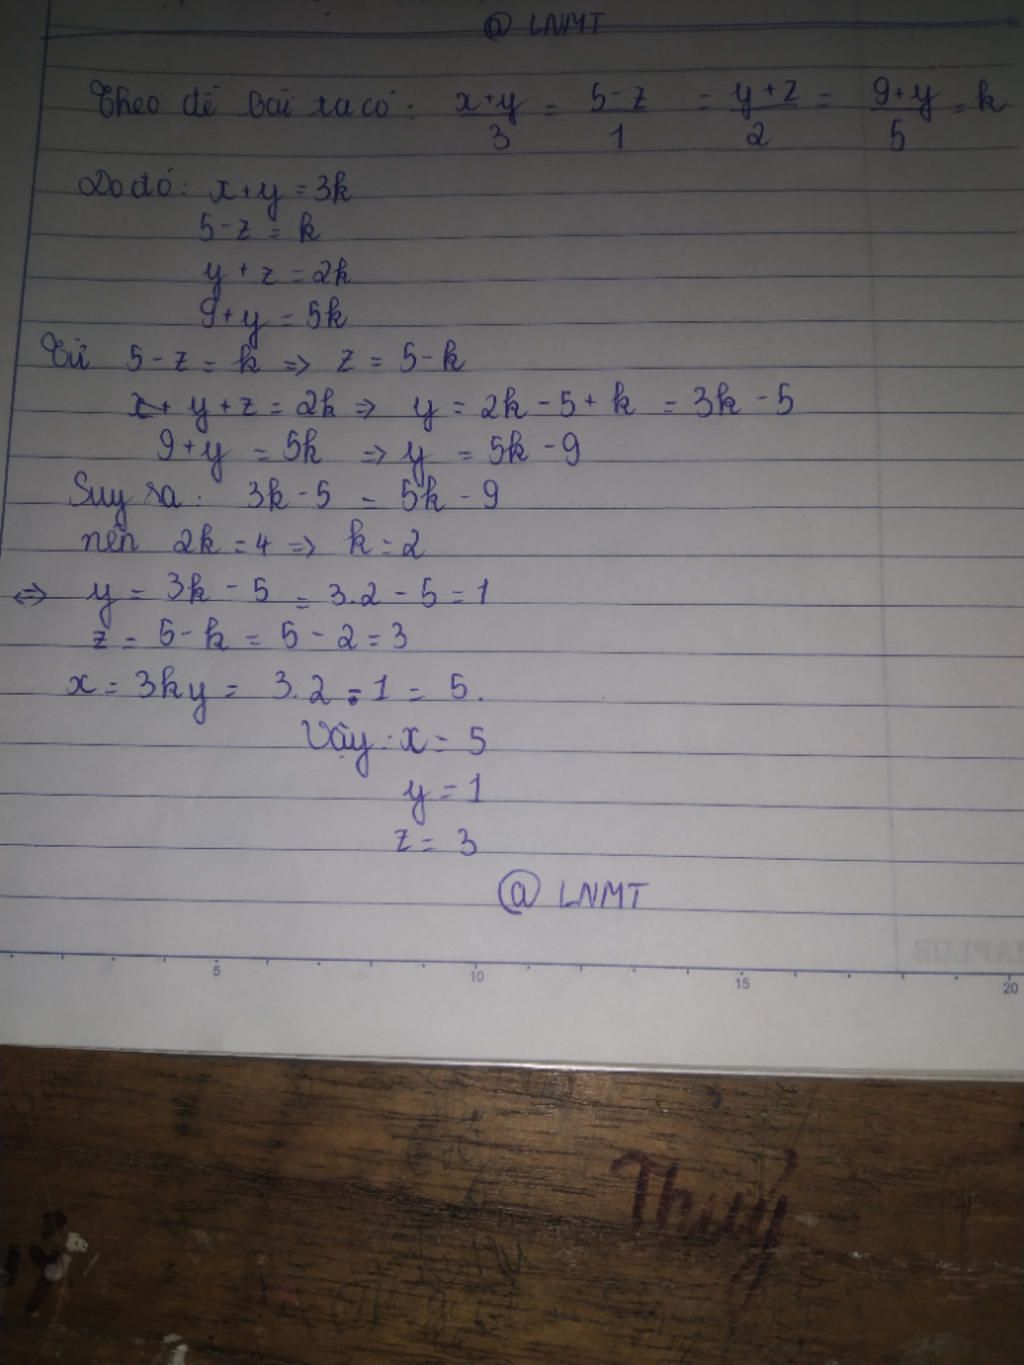 @ LNMT
Theo đề bài ta có: x+y/3 = 5-z/1 = y+z/2 = 9+y/5 = k
Do đó: x+y = 3k
5-z = k
y+z = 2k
9+y = 5k
Từ 5-z = k => z = 5-k
y+z = 2k => y = 2k-5+k = 3k-5
9+y = 5k => y = 5k-9
Suy ra: 3k-5 = 5k-9
nên 2k=4 => k=2
<=> y = 3k-5 = 3.2-5=1
z = 5-k = 5-2=3
x = 3ky = 3.2-1 = 5.
Vậy: x = 5
y = 1
z = 3
@ LNMT
5 10 15 20
Thuý